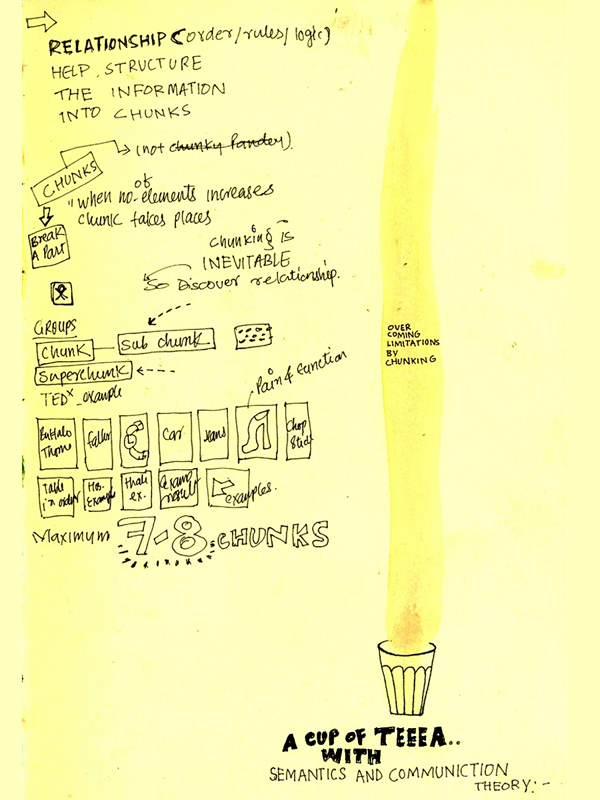 RELATIONSHIP (order/rules/logic)
HELP STRUCTURE
THE INFORMATION
INTO CHUNKS
(not chunky Pandey).
CHUNKS
"when no. of elements increases
chunk takes places
Break
A Part
chunking is
INEVITABLE
So Discover relationship.
GROUPS
Chunk
Sub chunk
Superchunk
TEDx example
Pain & function
Buffalo
Car
Jeans
Chop
Stick
Table
in order
Thali
ex.
examples.
Maximum 7-8 CHUNKS
OVER
COMING
LIMITATIONS
BY
CHUNKING
A CUP OF TEEEA..
WITH
SEMANTICS AND COMMUNICTION
THEORY:-